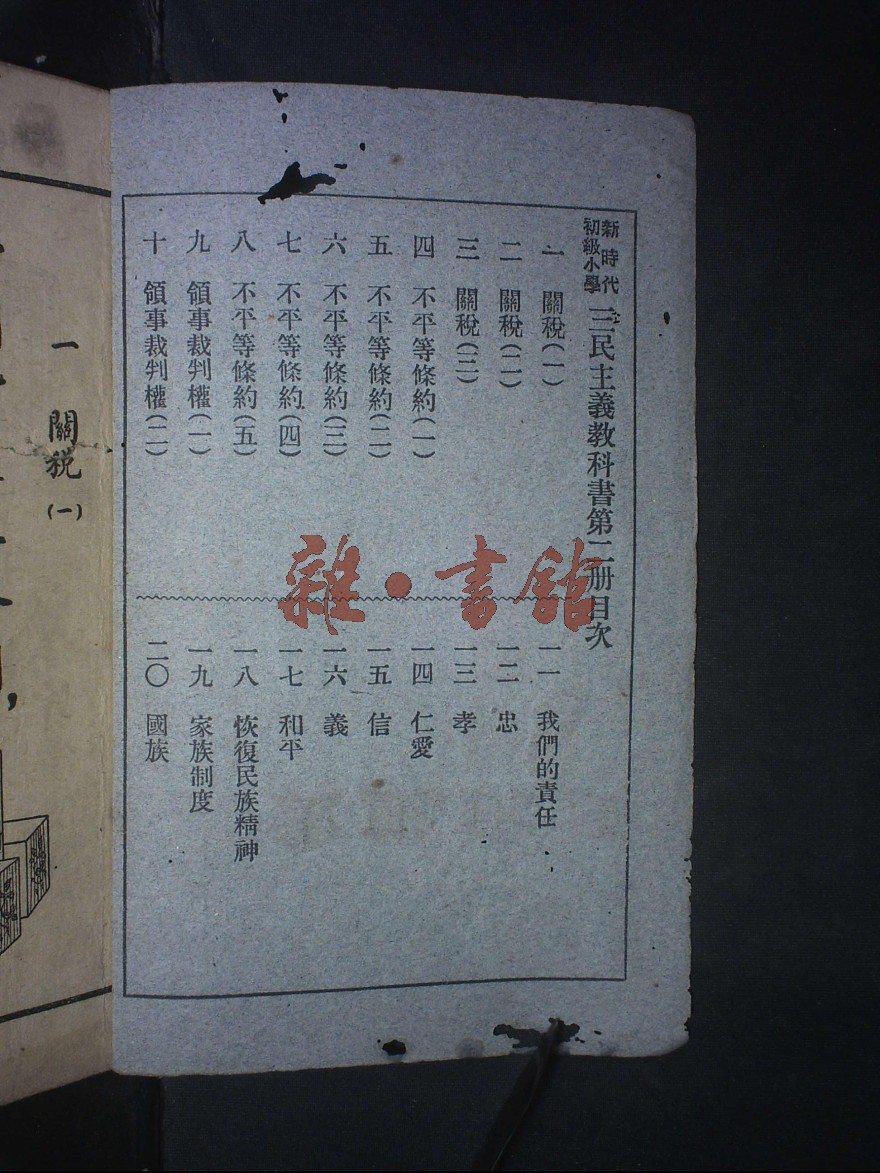 新時代
初級小學
三民主義教科書第二册目次
一 關稅(一)
二 關稅(二)
三 關稅(三)
四 不平等條約(一)
五 不平等條約(二)
六 不平等條約(三)
七 不平等條約(四)
八 不平等條約(五)
九 領事裁判權(一)
十 領事裁判權(二)
一一 我們的責任
一二 忠
一三 孝
一四 仁愛
一五 信
一六 義
一七 和平
一八 恢復民族精神
一九 家族制度
二〇 國族
一 關稅(一)
雜·書館